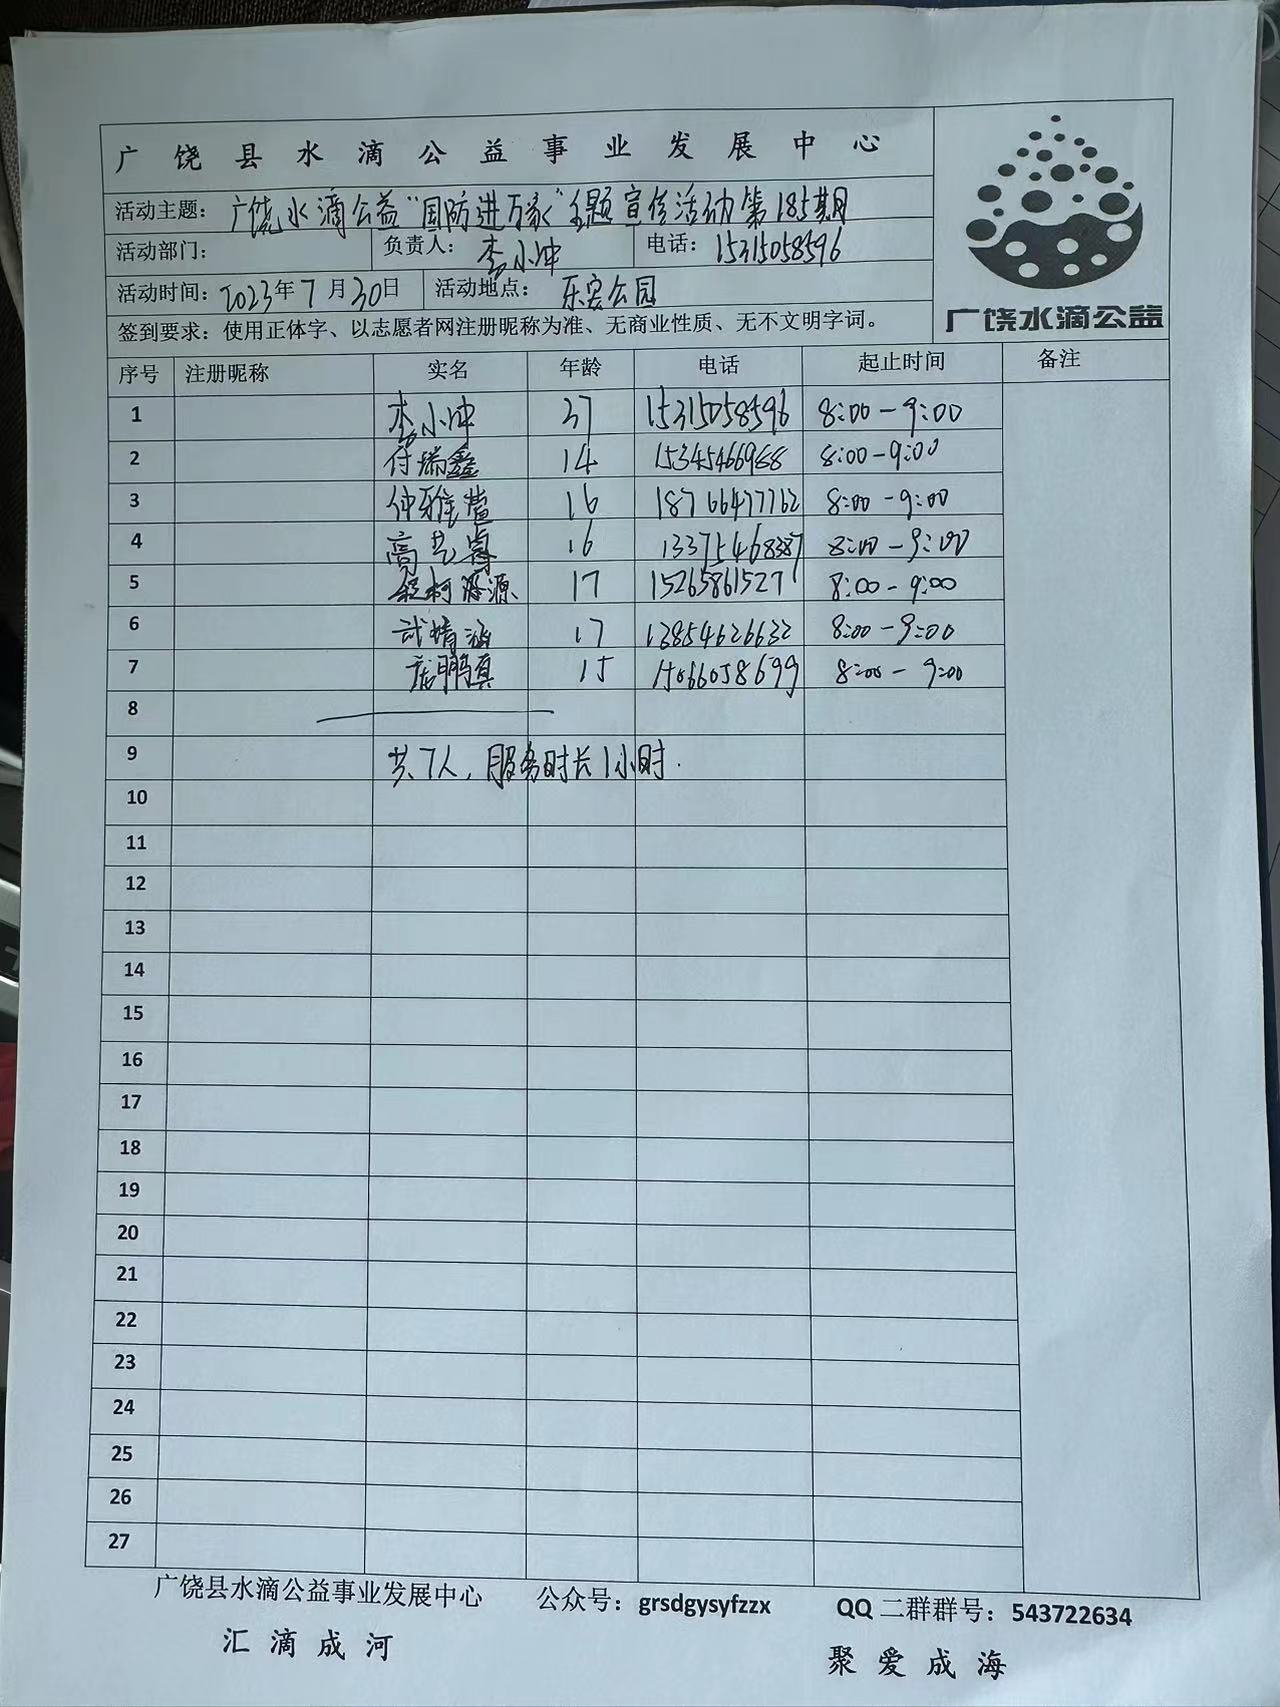 广饶县水滴公益事业发展中心
活动主题：广饶水滴公益“国防进万家”主题宣传活动第185期
活动部门： 负责人：李小冲 电话：15315058596
活动时间：2023年7月30日 活动地点：乐安公园
签到要求：使用正体字、以志愿者网注册昵称为准、无商业性质、无不文明字词。
广饶水滴公益
序号 注册昵称 实名 年龄 电话 起止时间 备注
1 李小冲 37 15315058596 8:00-9:00
2 付瑞鑫 14 15345466988 8:00-9:00
3 仲雅萱 16 18766477762 8:00-9:00
4 高艺睿 16 13375468387 8:00-9:00
5 17 15265861527 8:00-9:00
6 武精涵 17 13854626632 8:00-9:00
7 庞鹏真 15 15066058699 8:00-9:00
8
9 共7人，服务时长1小时.
10
11
12
13
14
15
16
17
18
19
20
21
22
23
24
25
26
27
广饶县水滴公益事业发展中心 公众号：grsdgysyfzzx QQ二群群号：543722634
汇滴成河 聚爱成海